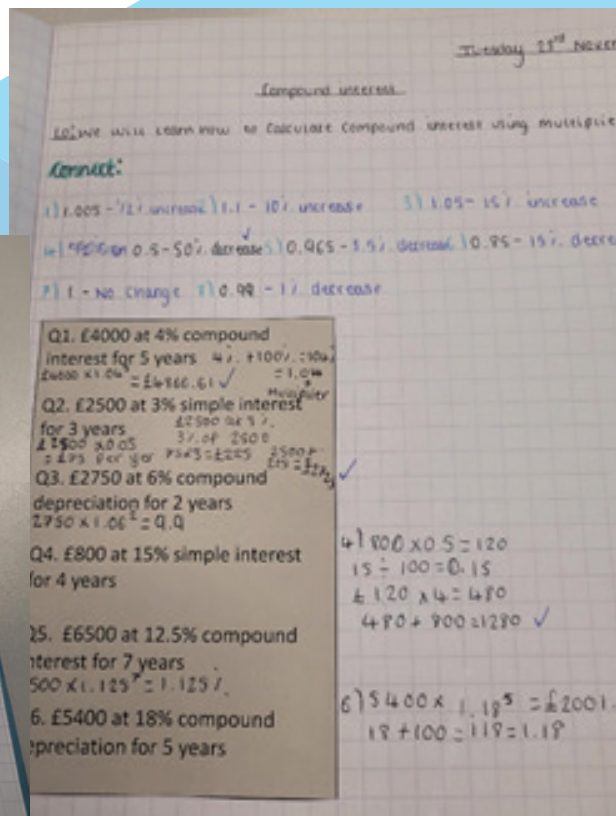 Tuesday 28th Novem
Compound interest
LO: We will learn how to calculate compound interest using multiplie
Connect:
1) 1.005 - 1/2% increase 2) 1.1 - 10% increase 3) 1.05 - 15% increase
4) 0.5 - 50% decrease 5) 0.965 - 3.5% decrease 6) 0.85 - 15% decre
7) 1 - No change 8) 0.99 - 1% decrease
Q1. £4000 at 4% compound
interest for 5 years 4% + 100% = 104%
£4000 x 1.04 = £4866.61 ✓ = 1.04
Multiplier
Q2. £2500 at 3% simple interest
for 3 years £2500 at 3%
3% of 2500
£2500 x 0.03
= £75 per year 75x3 = £225 2500+
Q3. £2750 at 6% compound ✓
depreciation for 2 years
2750 x 1.06² = 9.9
Q4. £800 at 15% simple interest
for 4 years
4) 800 x 0.5 = 120
15 ÷ 100 = 0.15
£120 x 4 = 480
480 + 800 = 1280 ✓
Q5. £6500 at 12.5% compound
nterest for 7 years
500 x 1.125⁷ = 1.125%
6. £5400 at 18% compound
epreciation for 5 years
6) 5400 x 1.18⁵ = £2001.
18 + 100 = 118 = 1.18